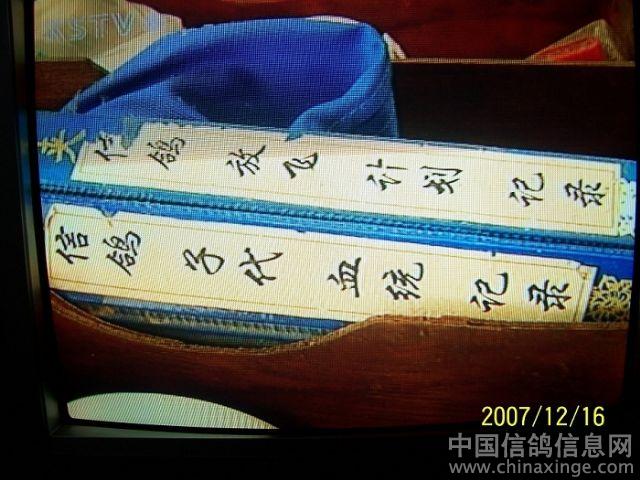 KSTV
信鸽 放飞 计划 记录
信鸽 子代 血统 记录
2007/12/16
中国信鸽信息网
www.chinaxinge.com